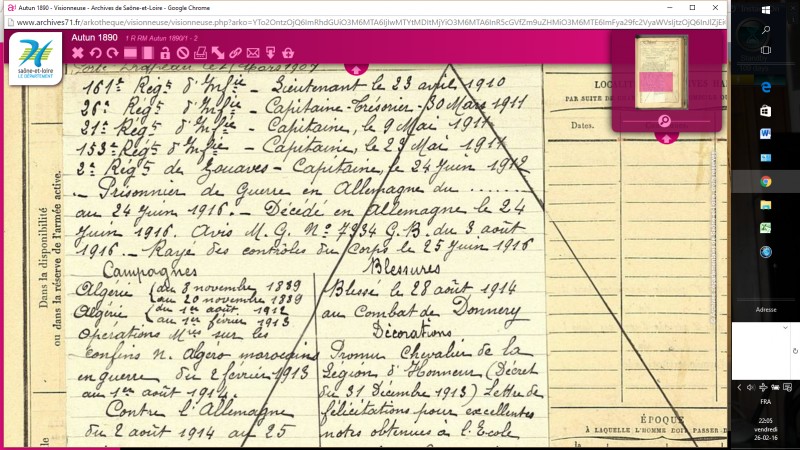 Autun 1890 - Visionneuse - Archives de Saône-et-Loire - Google Chrome
www.archives71.fr/arkotheque/visionneuse/visionneuse.php?arko=
Autun 1890 1 R RM Autun 1890/1 - 2
saône-et-loire
LE DÉPARTEMENT
161e Régt d'Infie - Lieutenant le 23 avril 1910
26e Régt d'Infie - Capitaine-Trésorier - 30 Mars 1911
21e Régt d'Infie - Capitaine, le 9 Mai 1911
153e Régt d'Infie - Capitaine, le 23 Mai 1911
2e Régt de Zouaves - Capitaine, le 24 Juin 1912
- Prisonnier de Guerre en Allemagne du ........
au 24 Juin 1916. - Décédé en Allemagne le 24
Juin 1916. Avis M. G. No 7934 G.B. du 3 août
1916. - Rayé des contrôles du Corps le 25 Juin 1916
Campagnes
Algérie (du 8 novembre 1889
au 20 novembre 1889
Algérie (du 1er août 1912
au 1er février 1913
Opérations Mres sur les
confins N. Algéro marocains
en guerre du 2 février 1913
au 1er août 1914.
Contre l'Allemagne
du 2 août 1914 au 25
Blessures
Blessé le 28 août 1914
au Combat de Donnery
Décorations
Promu Chevalier de la
Légion d'Honneur (Décret
du 31 Décembre 1913) Lettre de
félicitations pour excellentes
notes obtenues à l'Ecole
Dans la disponibilité
ou dans la réserve de l'armée active.
LOCALI
PAR SUITE DE
Dates.
ÉPOQUE
À LAQUELLE L'HOMME DOIT PASSER D
Adresse
FRA
22:05
vendredi
26-02-16